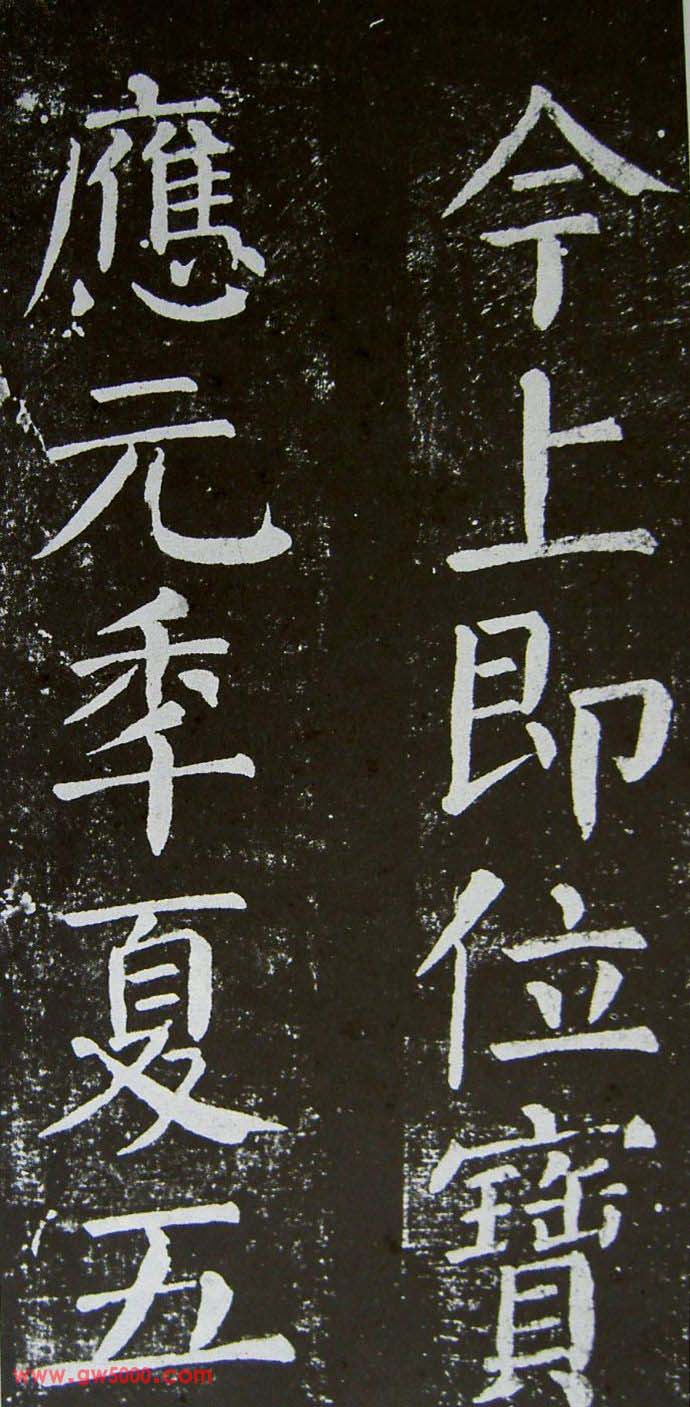 今上即位寶
應元秊夏五
www.gw5000.com